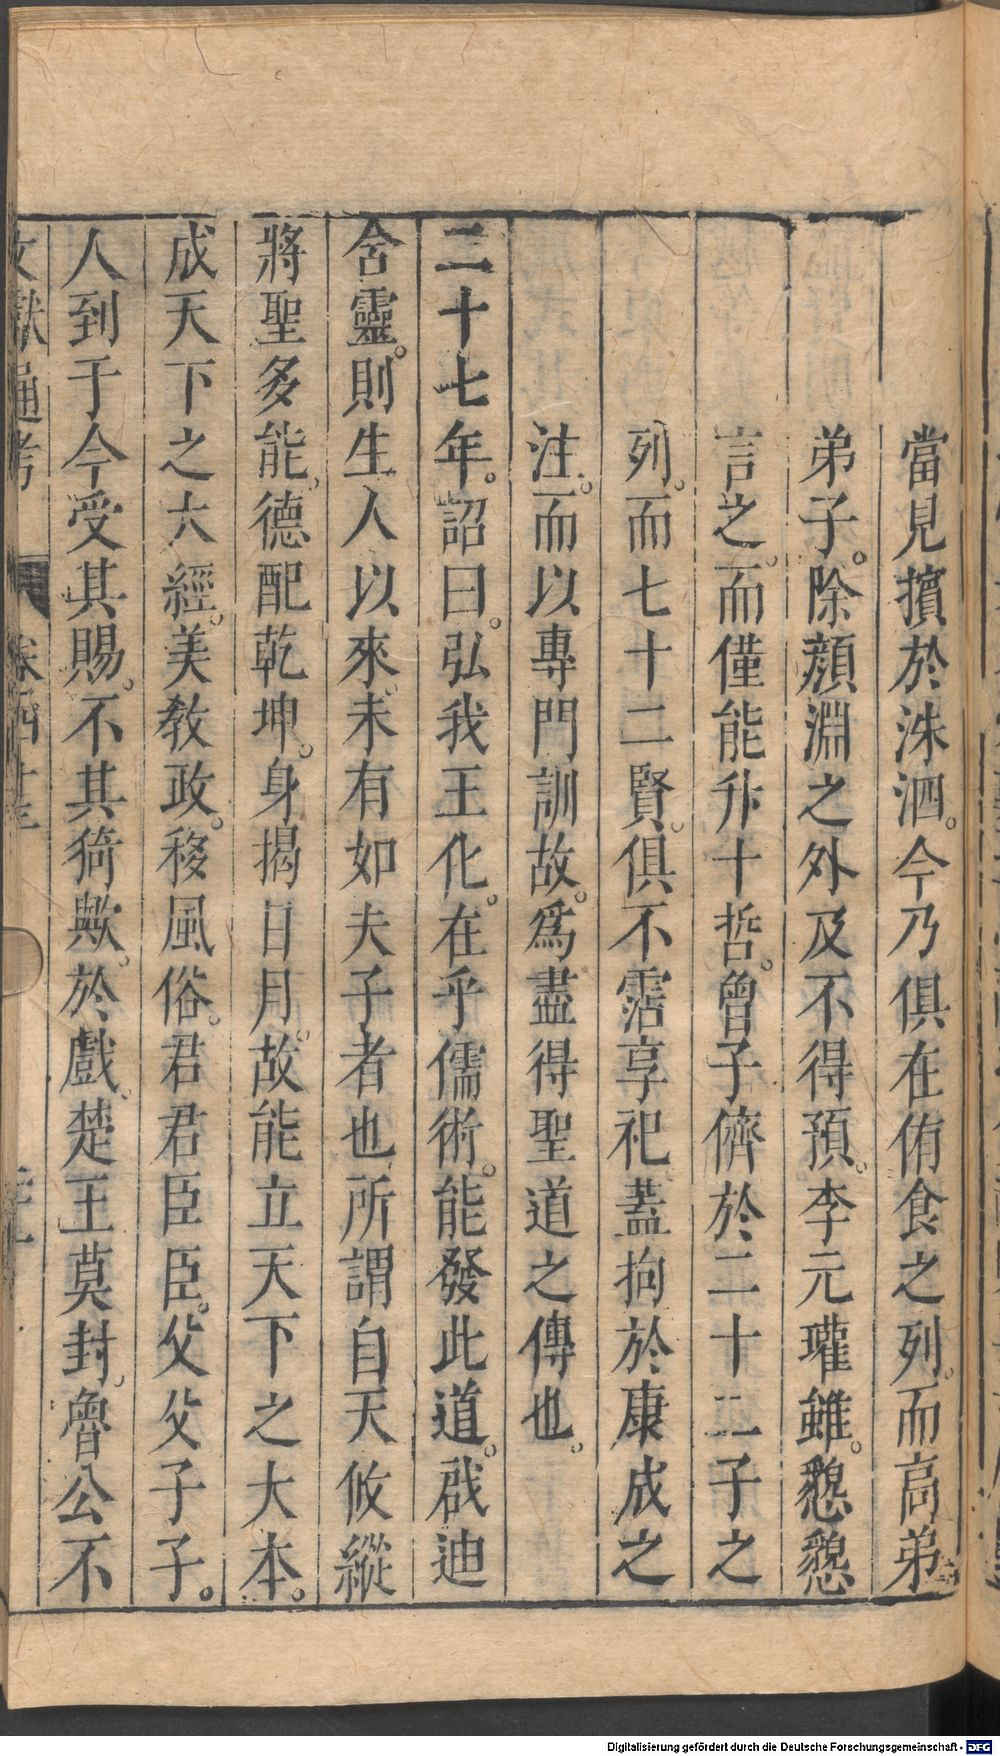 當見擯於洙泗。今乃俱在侑食之列。而高弟
弟子。除顏淵之外及不得預。李元瓘雖。懇懇
言之。而僅能升十哲。曾子儕於二十二子之
列。而七十二賢。俱不霑享祀。蓋拘於康成之
注。而以專門訓故。爲盡得聖道之傳也。
二十七年。詔曰。弘我王化。在乎儒術。能發此道。啟迪
含靈。則生人以來。未有如夫子者也。所謂自天攸縱
將聖多能。德配乾坤。身揭日月。故能立天下之大本。
成天下之大經。美敎政。移風俗。君君臣臣。父父子子。
人到于今受其賜。不其猗歟。於戲。楚王莫封。魯公不
文獻通考 卷四十三
Digitalisierung gefördert durch die Deutsche Forschungsgemeinschaft - DFG